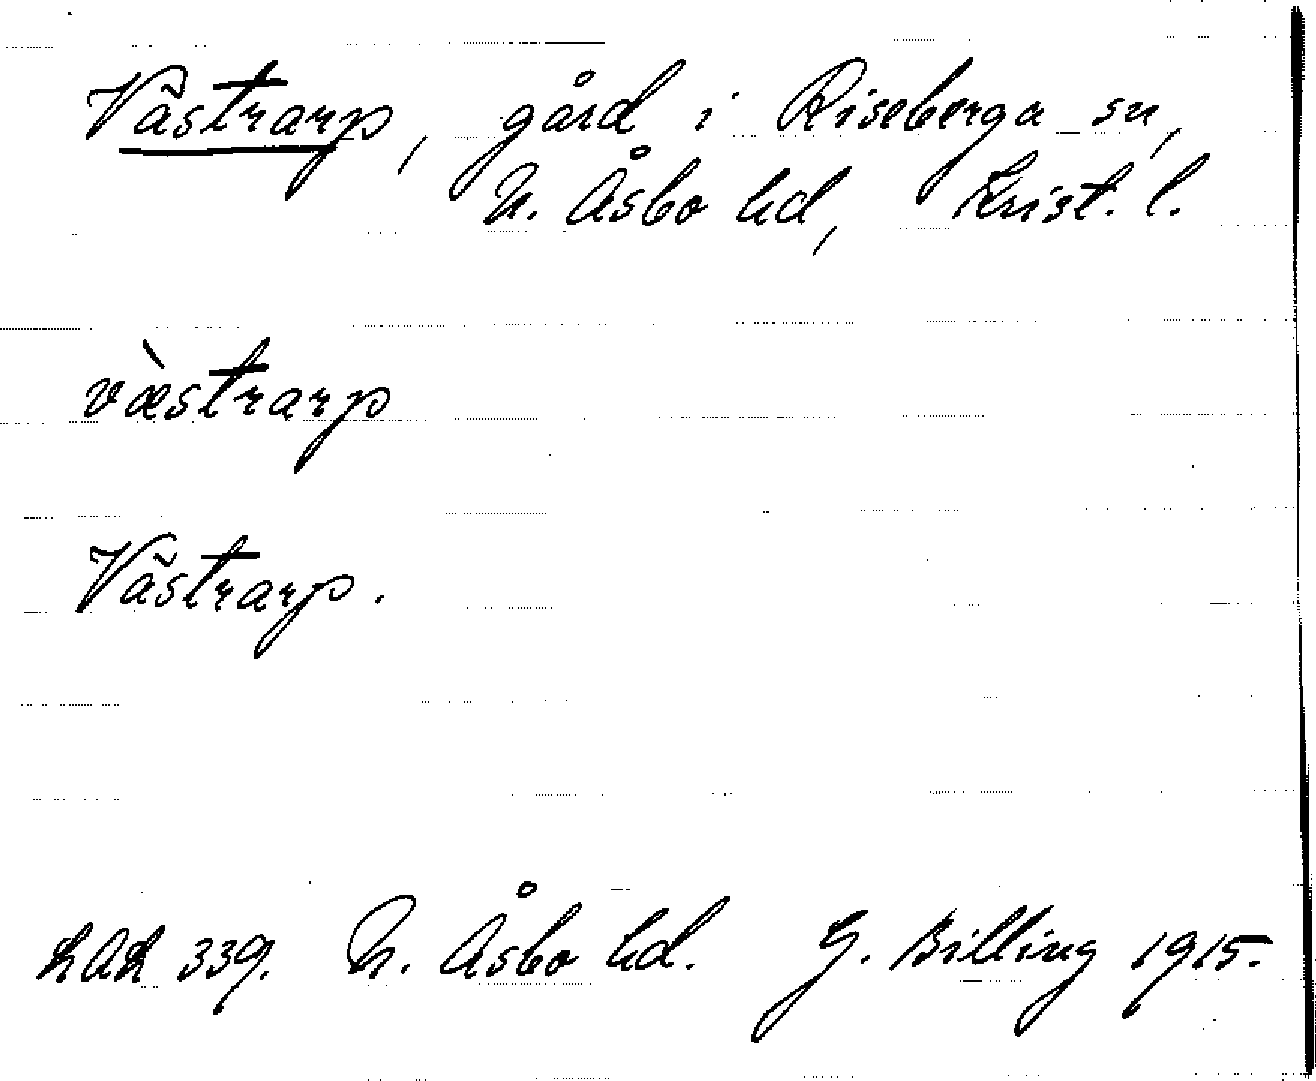 Västrarp, gård i Riseberga sn,
N. Åsbo hd, Krist. l.
væ̀strarp
Västrarp.
LAL 339. N. Åsbo hd. G. Billing 1915.